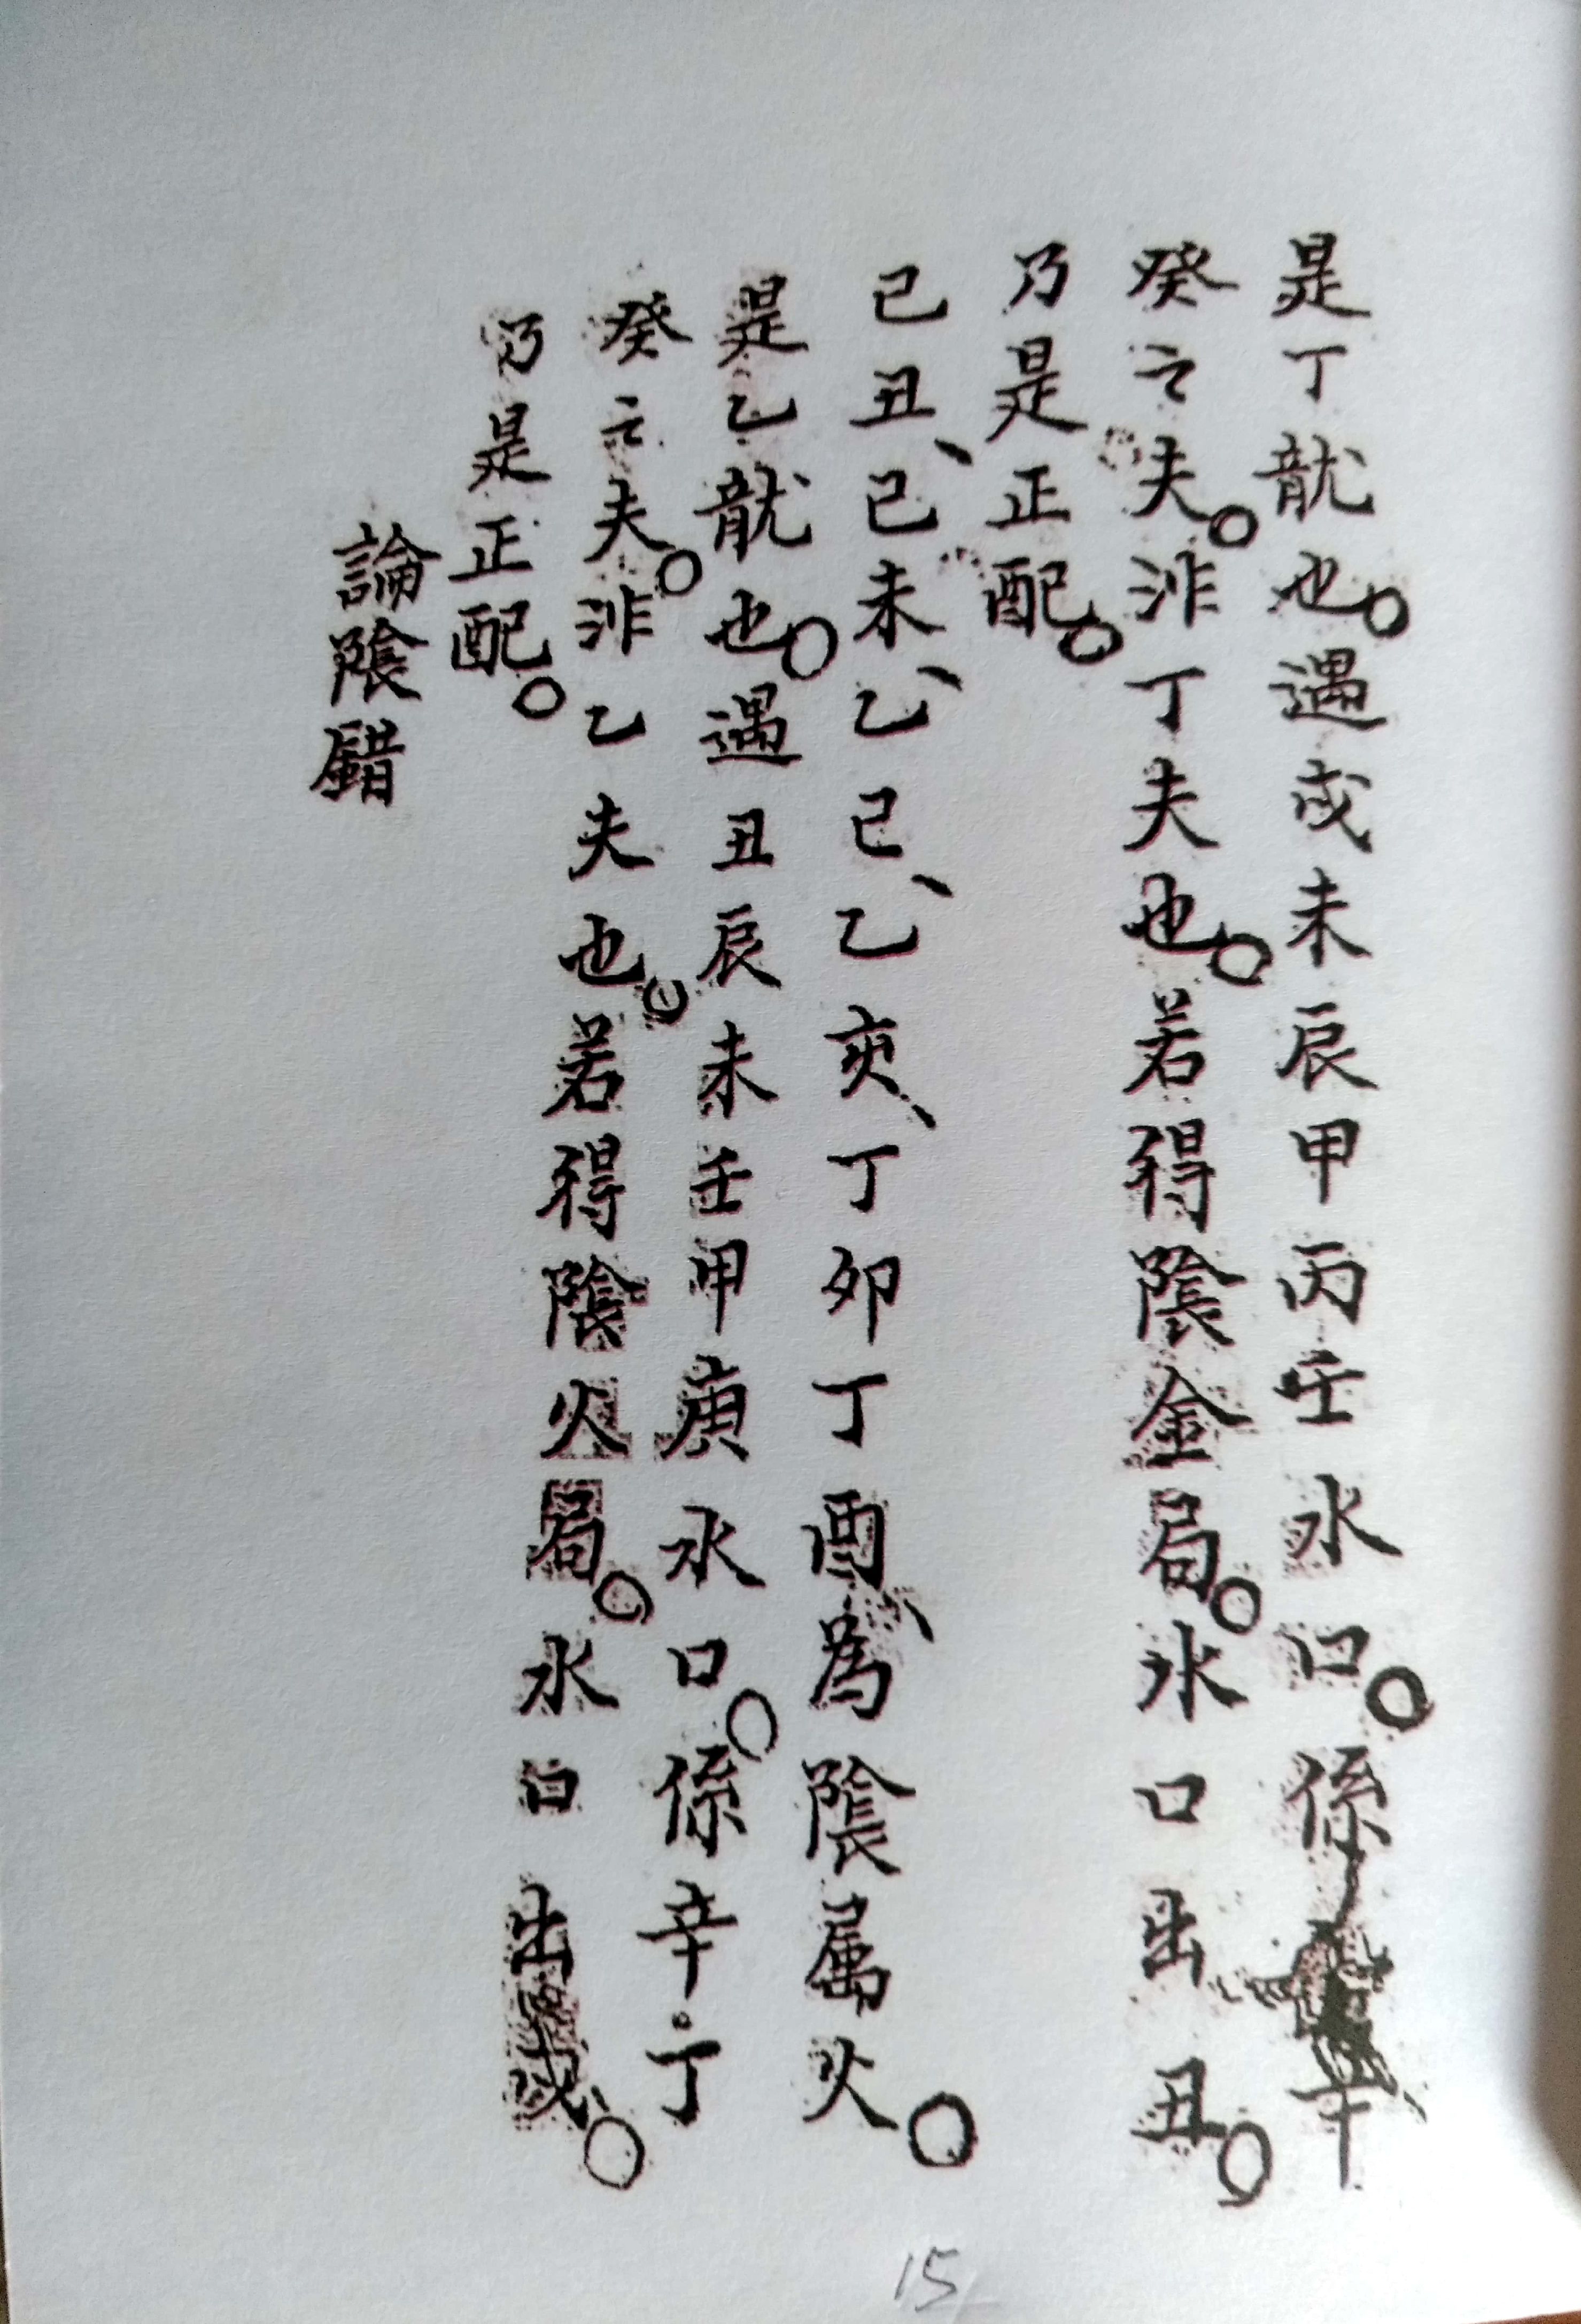 是丁龍也。遇戌未辰甲丙壬水口。係辛
癸之夫。非丁夫也。若得陰金局。水口出丑。
乃是正配。
己丑、己未、乙己、乙亥、丁卯丁酉、為陰屬火。
是乙龍也。遇丑辰未壬甲庚水口。係辛。丁
癸之夫。非乙夫也。若得陰火局。水口出戌。
乃是正配。
論陰錯
15